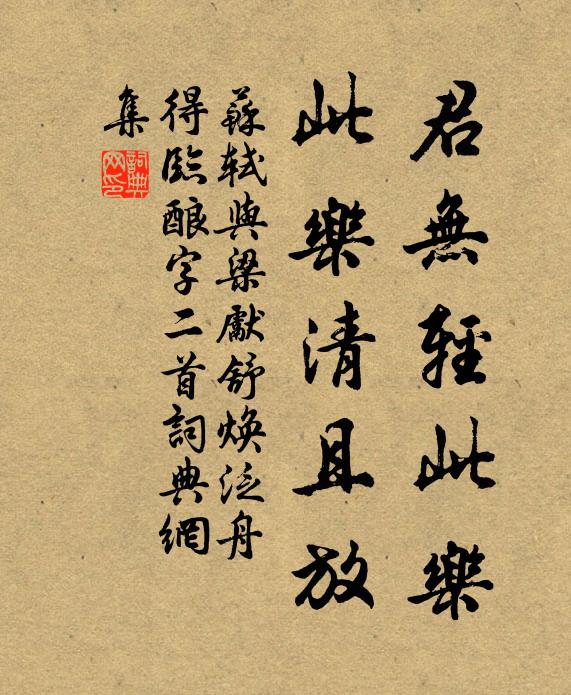 君無輕此樂
此樂清且放
蘇軾與梁獻舒煥泛舟
得臨釀字二首詞典網
集
詞典網印